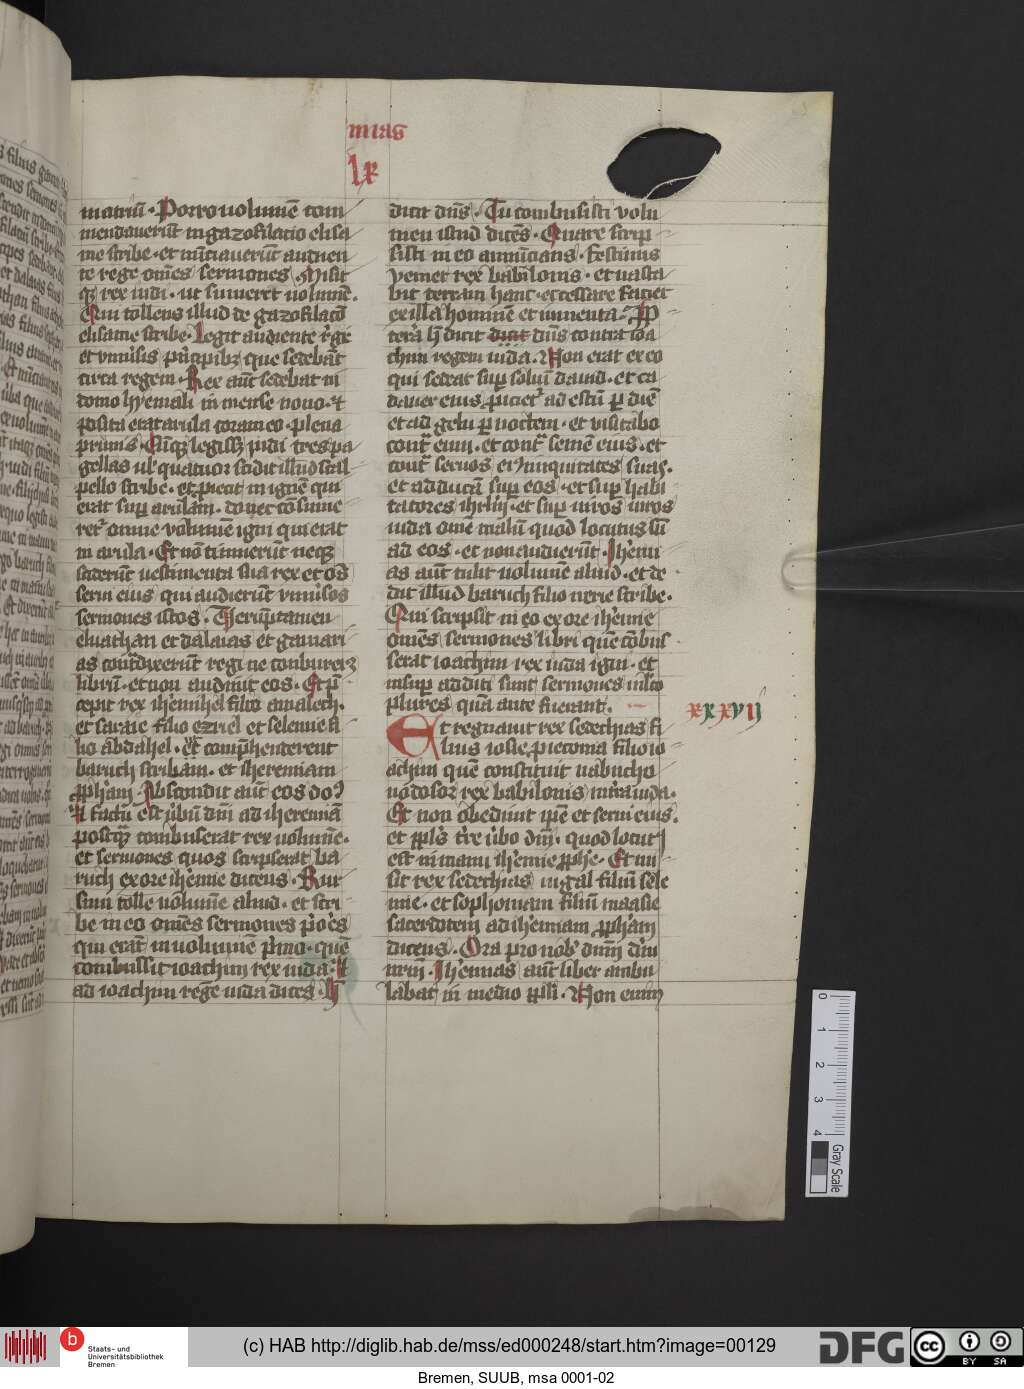 mias
lx
matriū · Porro volumē com
mendaverūt in gazofilatio elisa
me scribe · et nūciaverūt audien
te rege om̄es sermones · Misit
q; rex iudi · ut sumeret volumē ·
Qui tollens illud de gazofilacō
elisame scribe · Legit audiente rege
et vniusis p̄ncipib; que sedebāt
circa regem · Rex aūt sedebat in
domo hyemali in mense nono · et
posita erat arula coram eo · plena
prunis · Cūq; legiss; iudi tres pa
gellas ul' quatuor scidit illud scal
pello scribe · et ꝓiecit in ignē qui
erat sup arulam · donec cōsume
ret' omne volumē igni qui erat
in arula · Et nō timuerūt neq;
sciderūt vestimenta sua rex et om̄s
servi eius qui audierūt vniv̄sos
sermones istos · Verūptamen
elnathan et dalaias et gamari
as contᵃdixerūt regi ne conbureret
librū · et non audivit eos · Et p̄
cepit rex iheremihel filio amalech ·
et saraie filio ezriel et selemie fi
lio abdahel · ut comp̄henderent
baruch scribam · et iheremiam
ꝓpham · Abscondit aūt eos do
Et factū est v̄bū dn̄i ad iheremiā
postqᵃ combuserat rex volumē ·
et sermones quos scripserat ba
ruch ex ore ih'emie dicens · Rur
sum tolle volumē aliud · et scri
be in eo om̄es sermones p̄ores
qui erāt in volumine p̄mo · quē
combussit ioachim rex iuda · Et
ad ioachim regē iuda dices · H̄
dicit dn̄s · Tu combusisti volu
men istud dicēs · Quare scrip
sisti in eo annūcians · Festinus
veniet rex babilonis · et vasta
bit terram hanc · et cessare faciet
ex illa hominē et iumenta · Prop
terea h̄ dicit dicit dn̄s contra ioa
chim regem iuda · Non erit ex eo
qui sedeat sup soliū david · et ca
daver eius ꝓiciet' ad estū p diē
et ad gelu p noctem · et visitabo
contᵃ eum · et contᵃ semē eius · et
contᵃ servos ei' iniquitates suas ·
et adducā sup eos · et sup habi
tatores ihrl'm · et sup viros viros
iuda om̄e malū quod locutus sū
ad eos · et non audierūt · Ih'emi
as aūt tulit volumē aliud · et de
dit illud baruch filio nerie scribe ·
Qui scripsit in eo ex ore ih'emie
om̄es sermones libri quē cōbus
serat ioachim rex iuda igni · et
insup additi sunt sermones mlto
plures quā ante fuerant ·
xxxvij
Et regnavit rex sedechias fi
lius iosie ꝓ ieconia filio io
achim quē constituit nabucho
nodosor rex babilonis in t̄ra iuda ·
Et non obedivit ip̄e et servi eius ·
et ppl's t̄re v̄bo dn̄i · quod locut'
est in manu ih'emie ꝓphe · Et mi
sit rex sedechias iugal filiū sele
mie · et sophoniam filiū maasie
sacerdotem ad ih'emiam ꝓpham
dicens · Ora pro nob' dnm̄ dm̄
nrm̄ · Ih'emias aūt liber ambu
labat in medio ppli · Non enim
0 1 2 3 4
Gray Scale
Staats- und
Universitätsbibliothek
Bremen
(c) HAB http://diglib.hab.de/mss/ed000248/start.htm?image=00129
DFG
cc BY SA
Bremen, SUUB, msa 0001-02